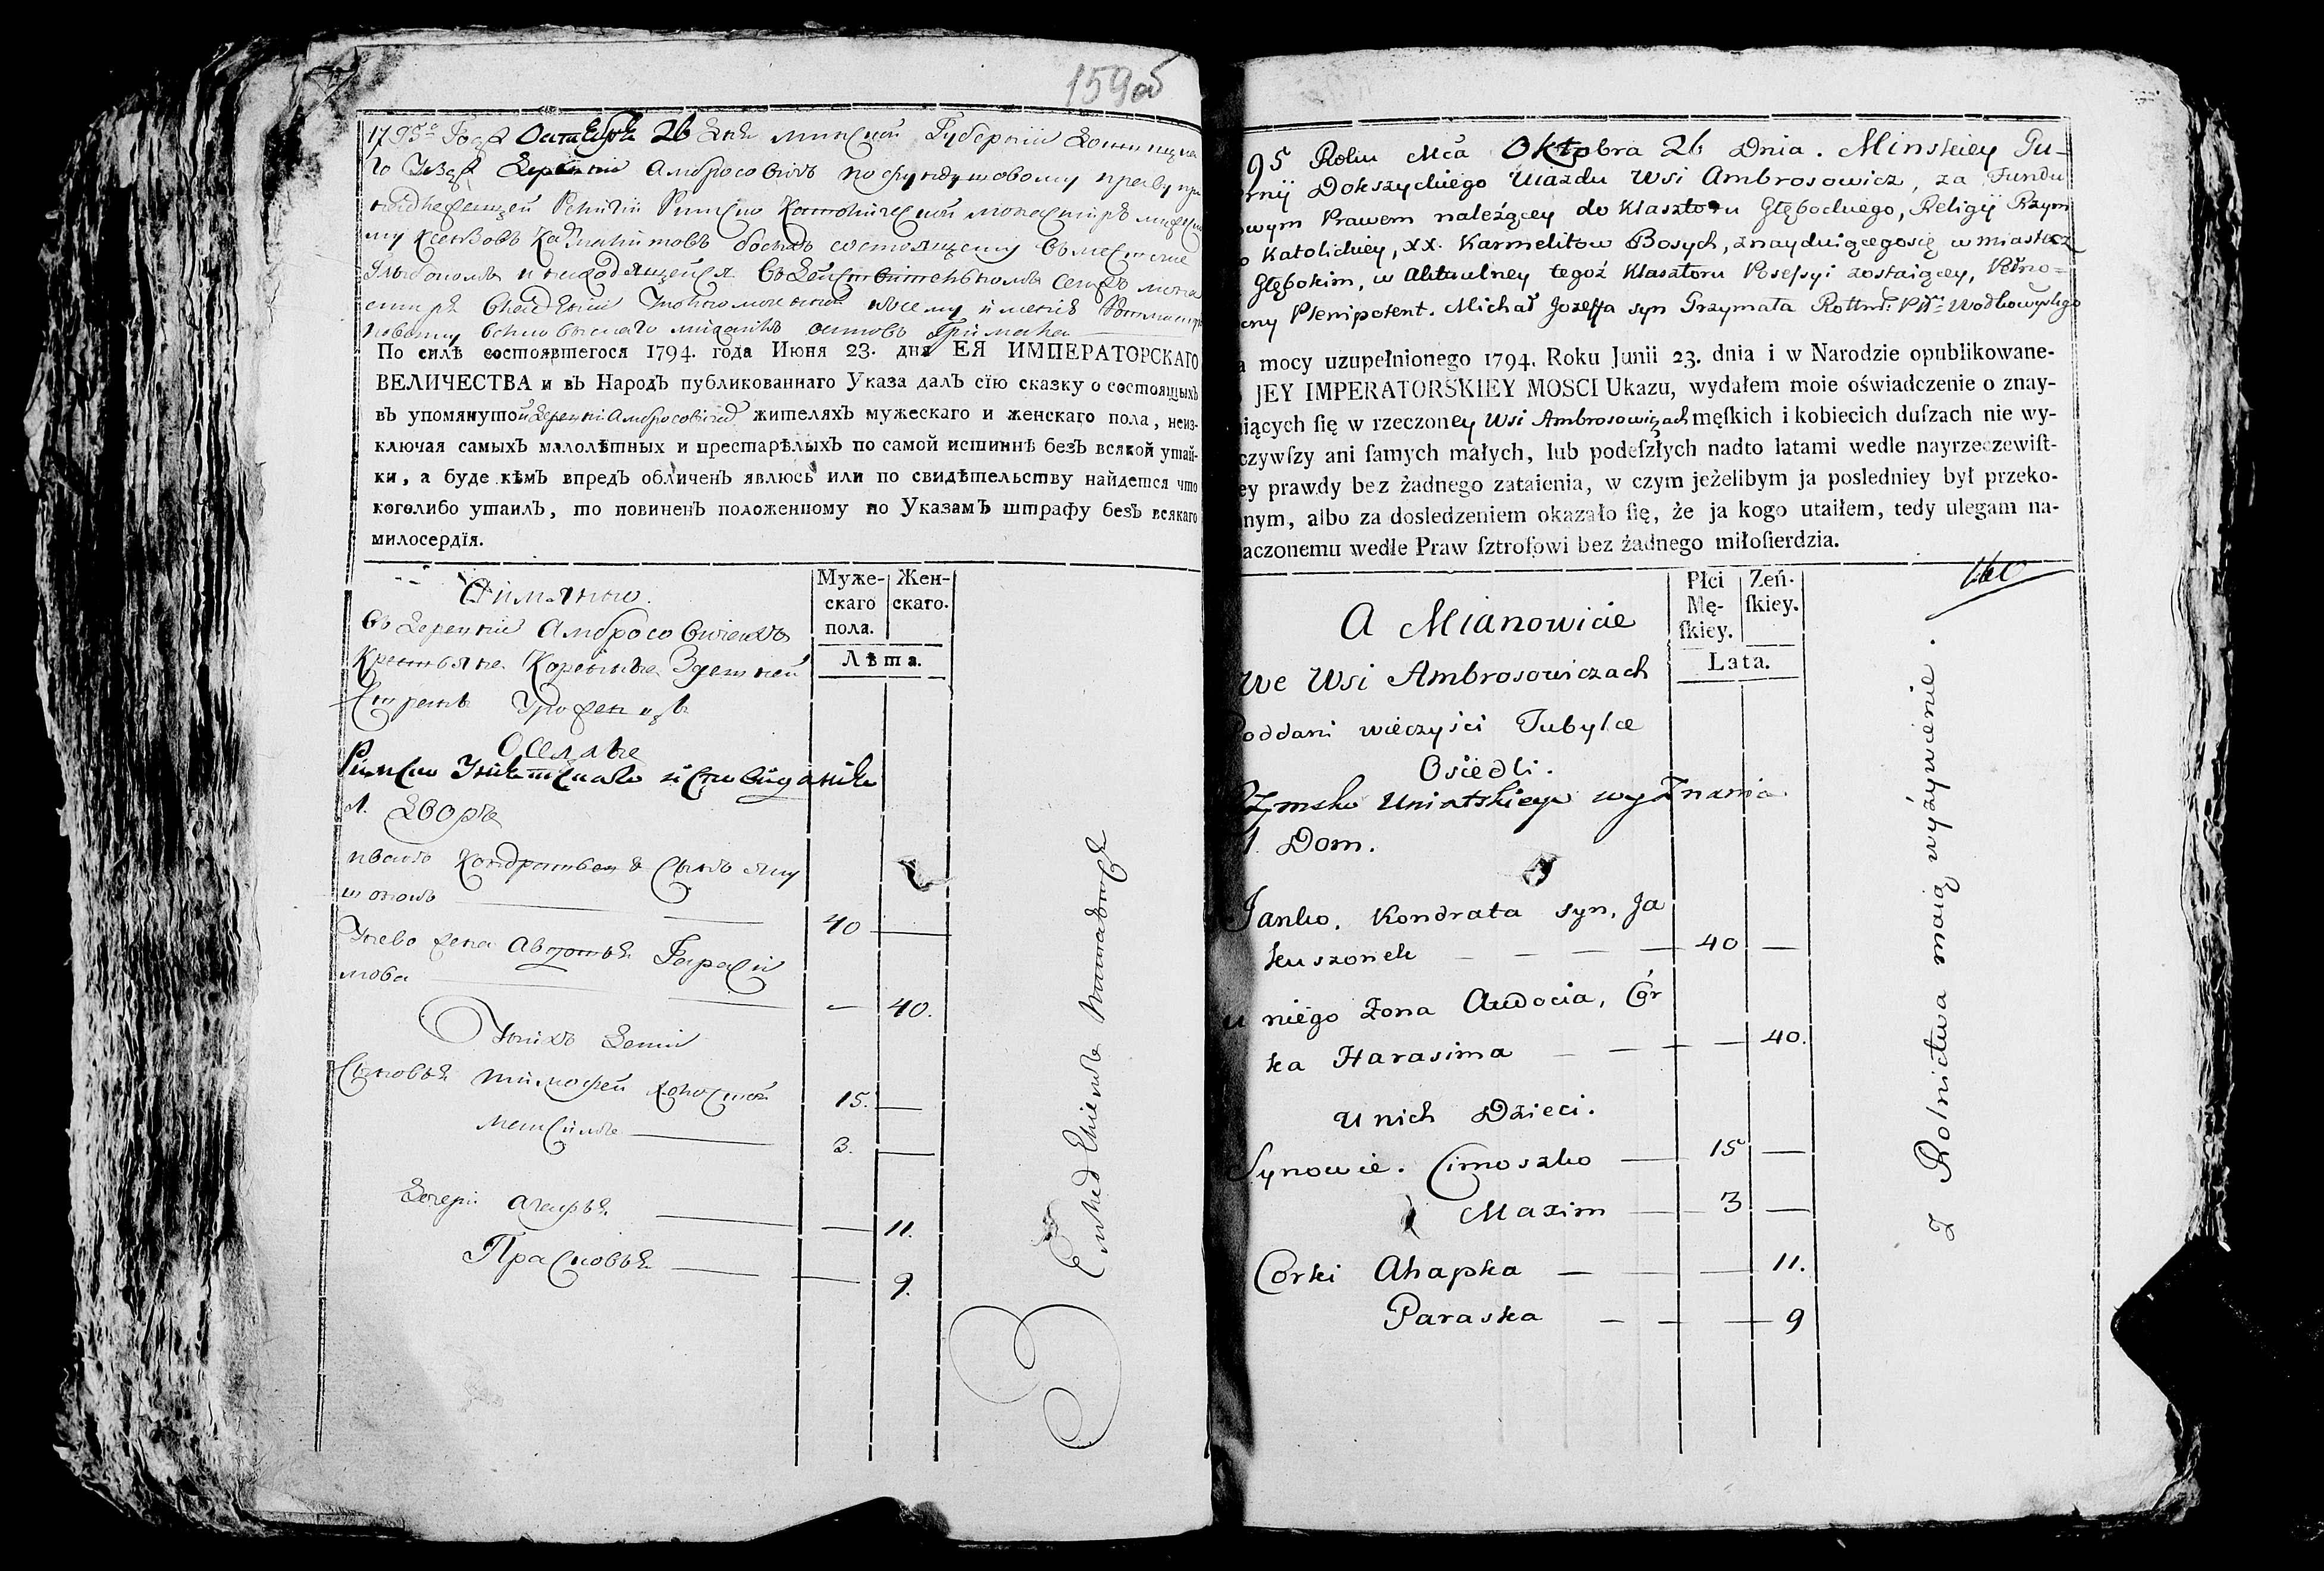 159об
1795го Года Октября 26 дня минской Губернии Докшицка
го Уезда деревни Амбросовичь по фундушовому праву при
надлежащей Религии Римско Католической монастырю
Ксензовъ Кармелитовъ босыхъ состоящему въ местечке
Глыбокомъ и находящейся въ действительномъ сего мона
стыря владении
По силѣ состоявшегося 1794. года Июня 23. дня ЕЯ ИМПЕРАТОРСКАГО
ВЕЛИЧЕСТВА и въ Народъ публикованнаго Указа далъ сїю сказку о состоящыхъ
въ упомянутой деревни Амбросовичахъ жителяхъ мужескаго и женскаго пола, неиз-
ключая самыхъ малолѣтных и престарѣлыхъ по самой истиннѣ безъ всякой утай-
ки, а буде кѣмъ впредъ обличенъ явлюсь или по свидѣтельству найдется что
коголибо утаилъ, то повиненъ положенному по Указамъ штрафу безъ всякаго
милосердїя.
Муже-
скаго
пола.
Жен-
скаго.
Лѣта.
Имянно.
Въ деревни Амбросовичахъ
Крестьяне Коренные Здешней
Староны Уроженцы
Оселые
Римско Униятскаго исповиданія
1. Дворъ
Иванъ Кондратьевъ сынъ Яку
шонокъ 40 —
У нево жена Авдотья Гараси
мова — 40.
У нихъ Дети
Сыновья Тимофей холостой 15. —
Максимъ 3. —
Дочери Агафья — 11.
Прасковья — 9.
95 Roku Mca Oktobra 26 Dnia. Minskiey Gu-
rnij Dokszyckiego Uiazdu Wsi Ambrosowicz, za Fundu
owym Prawem należącey do Klasztoru Głębockiego, Religij Rzym
o Katolickiey, XX. Karmelitow Bosych, znayduiącegosię w miastecz
Głębokim, w Aktualney tegoż Klasztoru Possessyi zostaiącey, Pełno-
cny Plenipotent. Michał Jozeffa syn Grzymała Rottm: Ptt: Wodkowyskgo
a mocy uzupełnionego 1794. Roku Junii 23. dnia i w Narodzie opublikowane-
JEY IMPERATORSKIEY MOSCI Ukazu, wydałem moie oświadczenie o znay-
iących ſię w rzeczoney Wsi Ambrosowiczach męſkich i kobiecich duſzach nie wy-
czywſzy ani ſamych małych, lub podeſzłych nadto latami wedle nayrzeczewiſt-
ey prawdy bez żadnego zataienia, w czym jeżelibym ja posledniey był przeko-
nym, albo za dosledzeniem okazało ſię, że ja kogo utaiłem, tedy ulegam na-
aczonemu wedle Praw ſztroſowi bez żadnego miłoſierdzia.
160
Płci
Mę-
ſkiey.
Zeń-
ſkiey.
Lata.
A Mianowicie
We Wsi Ambrosowiczach
Poddani wieczyści Tubylce
Osiedli.
Rzymsko Uniatskiego wyznania
1. Dom.
Janko, Kondrata syn, Ja
kuszonek — 40 —
u niego Żona Audocia, Cór
ka Harasima — 40.
U nich Dzieci.
Synowie. Cimoszko — 15 —
Maxim — 3 —
Corki Ahapka — 11.
Paraska — 9
Z Rolnictwa maią wyżywienie.